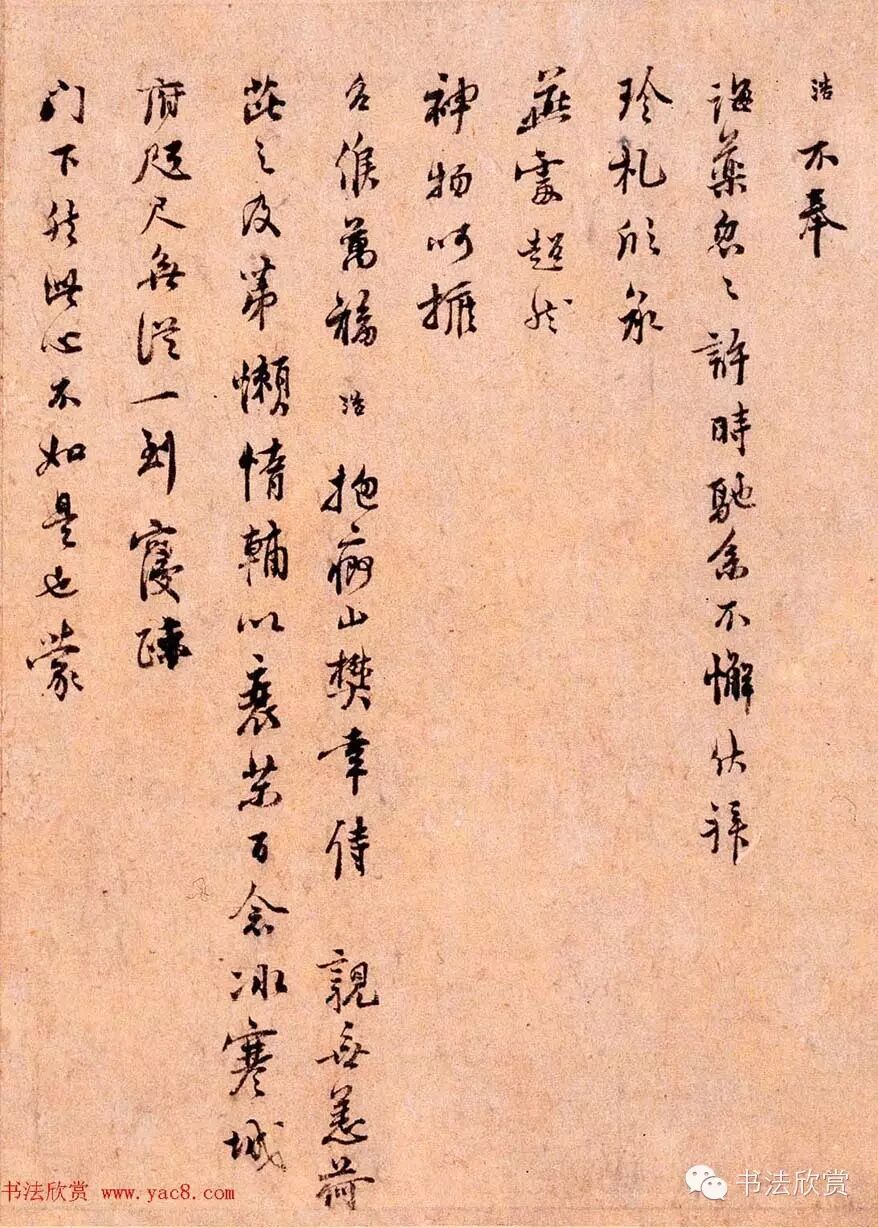 浩不奉
誨藥忽々許時馳系不懈伏拜
珍札欣承
燕處超然
神物呵擁
台候萬福浩抱病山樊幸侍 親無恙荷
芘之及第懶惰輔以衰苶百念冰寒城
府咫尺無從一到寖疎
門下然此心不如是也蒙
书法欣赏 www.yac8.com
书法欣赏